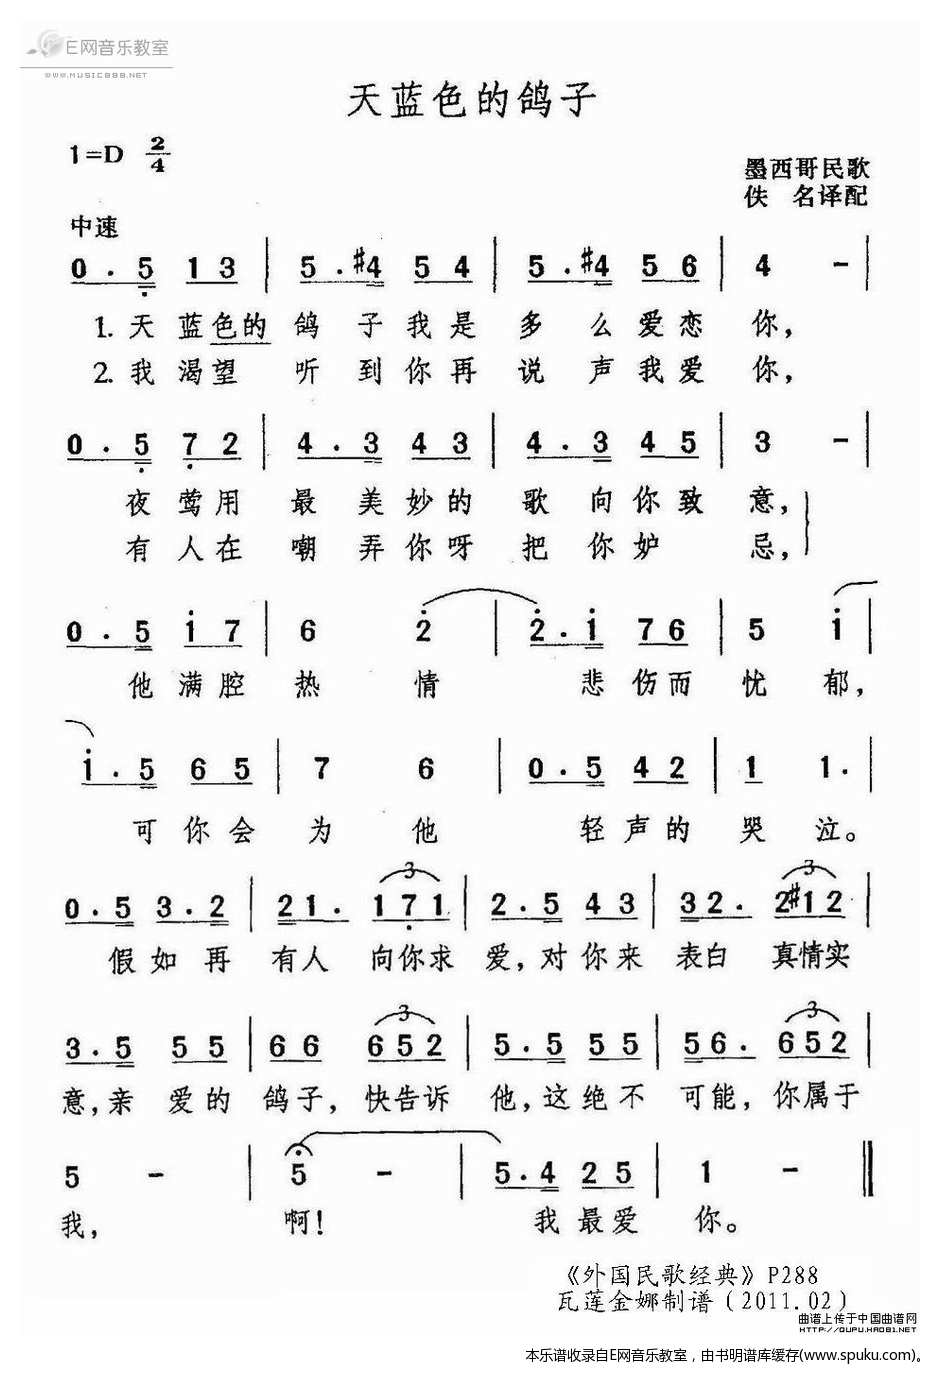 E网音乐教室
WWW.MUSIC888.NET
天蓝色的鸽子
1=D 2/4
墨西哥民歌
佚 名译配
中速
0.5 13 | 5.#4 54 | 5.#4 56 | 4 - |
1. 天 蓝色的 鸽 子我是 多 么爱恋 你,
2. 我 渴望 听 到你再 说 声我爱 你,
0.5 72 | 4.3 43 | 4.3 45 | 3 - |
夜 莺用 最 美妙的 歌 向你致 意,
有 人在 嘲 弄你呀 把 你妒 忌,
0.5 i7 | 6 2 | 2.i 76 | 5 i |
他 满腔 热 情 悲 伤而 忧 郁,
i.5 65 | 7 6 | 0.5 42 | 1 1. |
可 你会 为 他 轻 声的 哭 泣。
3 3
0.5 3.2 | 21. 171 | 2.5 43 | 32. 2#12 |
假 如 再 有人 向你求 爱,对 你来 表白 真情实
3 3
3.5 55 | 66 652 | 5.5 55 | 56. 652 |
意,亲 爱的 鸽子, 快告诉 他,这 绝不 可能, 你属于
5 - | 5 - | 5.4 25 | 1 - ||
我, 啊! 我 最爱 你。
《外国民歌经典》P288
瓦莲金娜制谱（2011.02）
曲谱上传于中国曲谱网
HTTP://QUPU.HAO81.NET
本乐谱收录自E网音乐教室，由书明谱库缓存(www.spuku.com)。